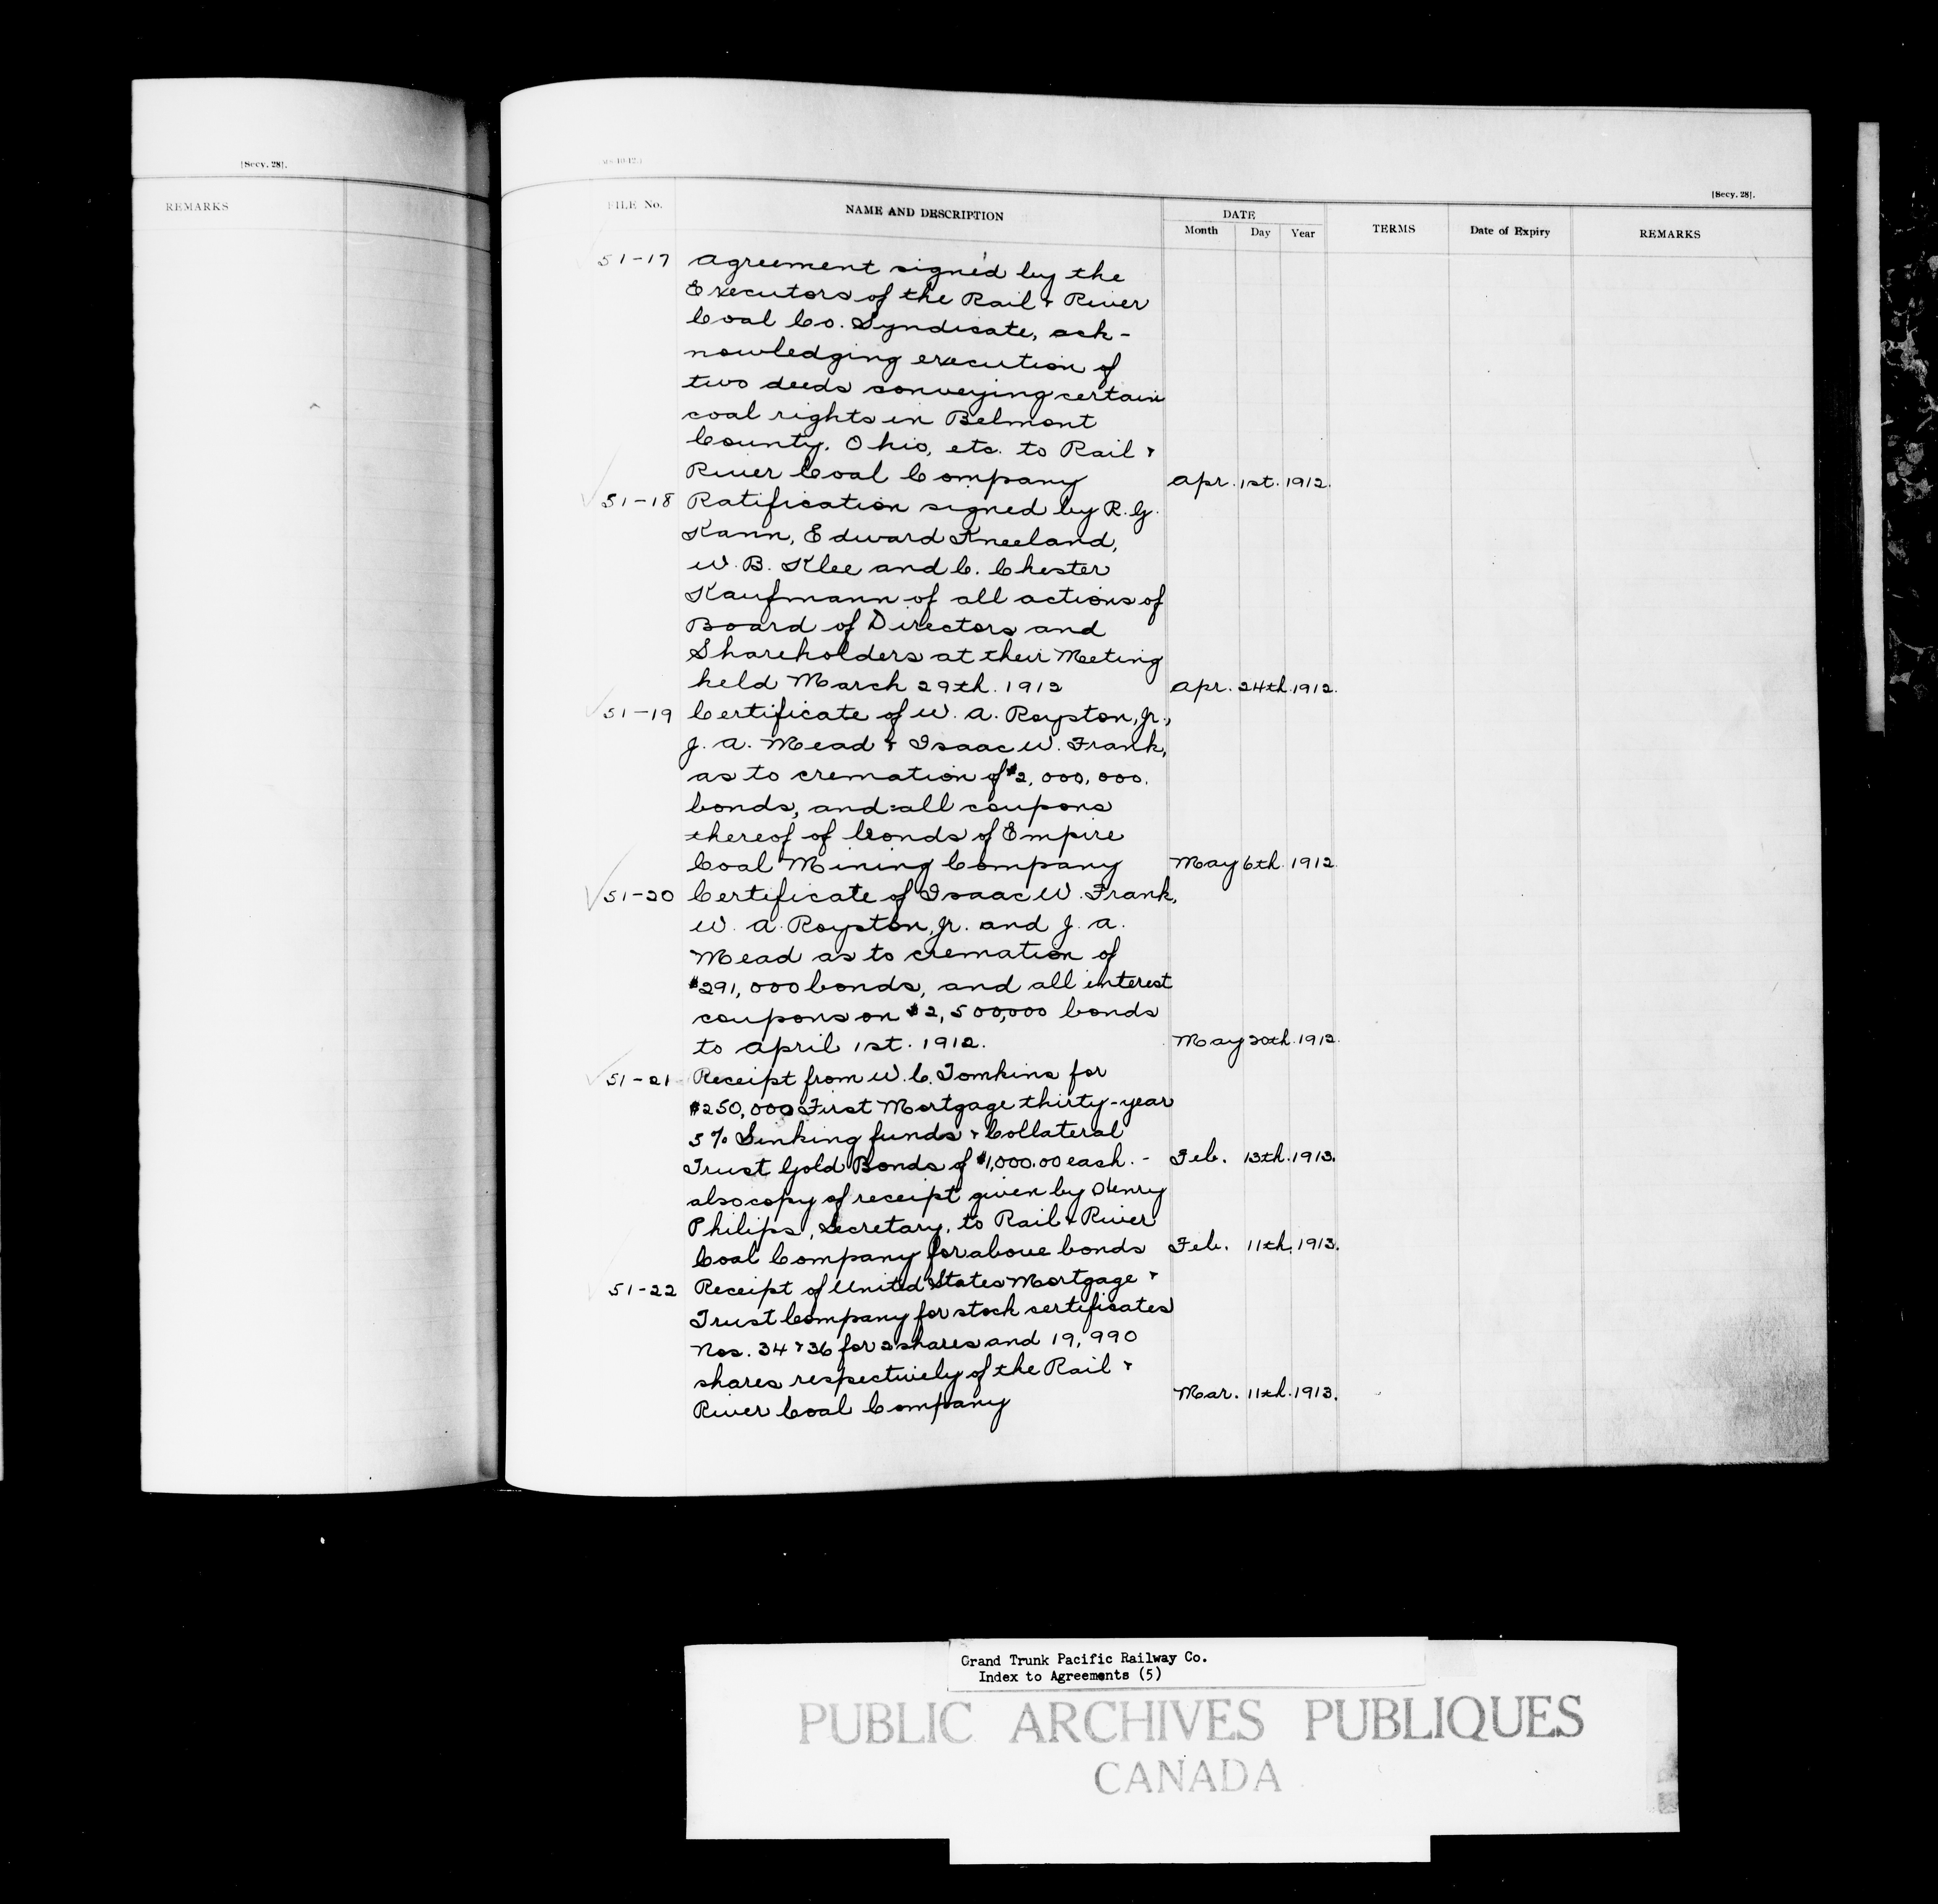 [Secy. 28].
REMARKS
[Secy. 28].
FILE No. NAME AND DESCRIPTION DATE Month Day Year TERMS Date of Expiry REMARKS
51-17 Agreement signed by the
Executors of the Rail & River
Coal Co. Syndicate, ack-
nowledging execution of
two deeds conveying certain
coal rights in Belmont
County, Ohio, etc. to Rail &
River Coal Company Apr. 1st. 1912.
51-18 Ratification signed by R. G.
Kann, Edward Kneeland,
W. B. Klee and C. Chester
Kaufmann of all actions of
Board of Directors and
Shareholders at their Meeting
held March 29th. 1912 Apr. 24th. 1912.
51-19 Certificate of W. A. Royston, Jr.,
J. A. Mead & Isaac W. Frank,
as to cremation of $2,000,000.
bonds, and all coupons
thereof of bonds of Empire
Coal Mining Company May 6th. 1912.
51-20 Certificate of Isaac W. Frank,
W. A. Royston, Jr. and J. A.
Mead as to cremation of
$291,000 bonds, and all interest
coupons on $2,500,000 bonds
to April 1st. 1912. May 20th. 1912.
51-21 Receipt from W. C. Tomkins for
$250,000 First Mortgage thirty-year
5% Sinking funds & Collateral
Trust Gold Bonds of $1,000.00 each. - Feb. 13th. 1913.
also copy of receipt given by Henry
Philips, Secretary, to Rail & River
Coal Company for above bonds Feb. 11th. 1913.
51-22 Receipt of United States Mortgage &
Trust Company for stock certificates
Nos. 34 & 36 for 2 shares and 19,990
shares respectively of the Rail &
River Coal Company Mar. 11th. 1913.
Grand Trunk Pacific Railway Co.
Index to Agreements (5)
PUBLIC ARCHIVES PUBLIQUES
CANADA